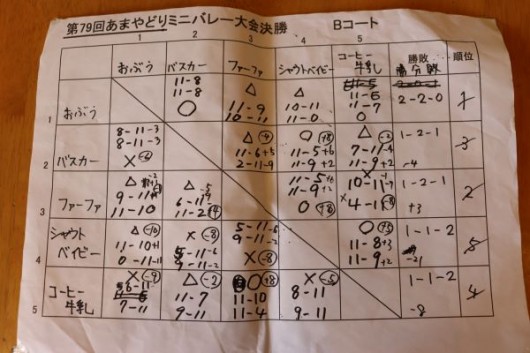 第79回あまやどりミニバレー大会決勝 Bコート
1 2 3 4 5
おぶう バスカー ファーファ シャウトベイビー コーヒー牛乳 勝敗 得失点 順位
1 おぶう
11-8 △ ○ △
11-8 11-9 10-11 11-5
○ 10-11 11-0 11-7
2-2-0 1
2 バスカー
8-11-3 △ -4 ○ +8 △ -2
8-11-3 11-6+5 11-5+6 7-11-4
× -6 2-11-9 11-9+2 11-9+2
1-2-1 -4 3
3 ファーファ
△ △ △ ×
9-11 6-11 11-9+2 10-11-1
11-10 11-2 ○ +8 4-11
1-2-1 +3 2
4 シャウトベイビー
△ -10 × -8 5-11-6 ○ +5
11-10+1 5-11-6 9-11-2 11-8+3
0-11-11 9-11-2 × -8 11-9+2
1-1-2 -21 5
5 コーヒー牛乳
× -9 △ -2 ○ +8 × -5
6-11 11-7 11-10 8-11
7-11 9-11 11-4 9-11
1-1-2 -8 4